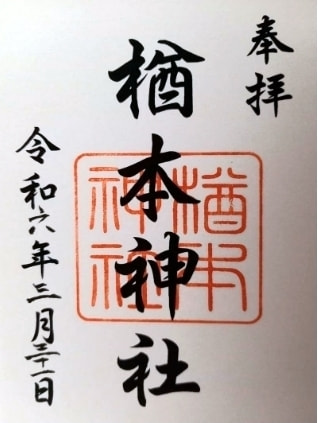 奉拝
楢本神社
楢本
神社
令和六年三月三十一日